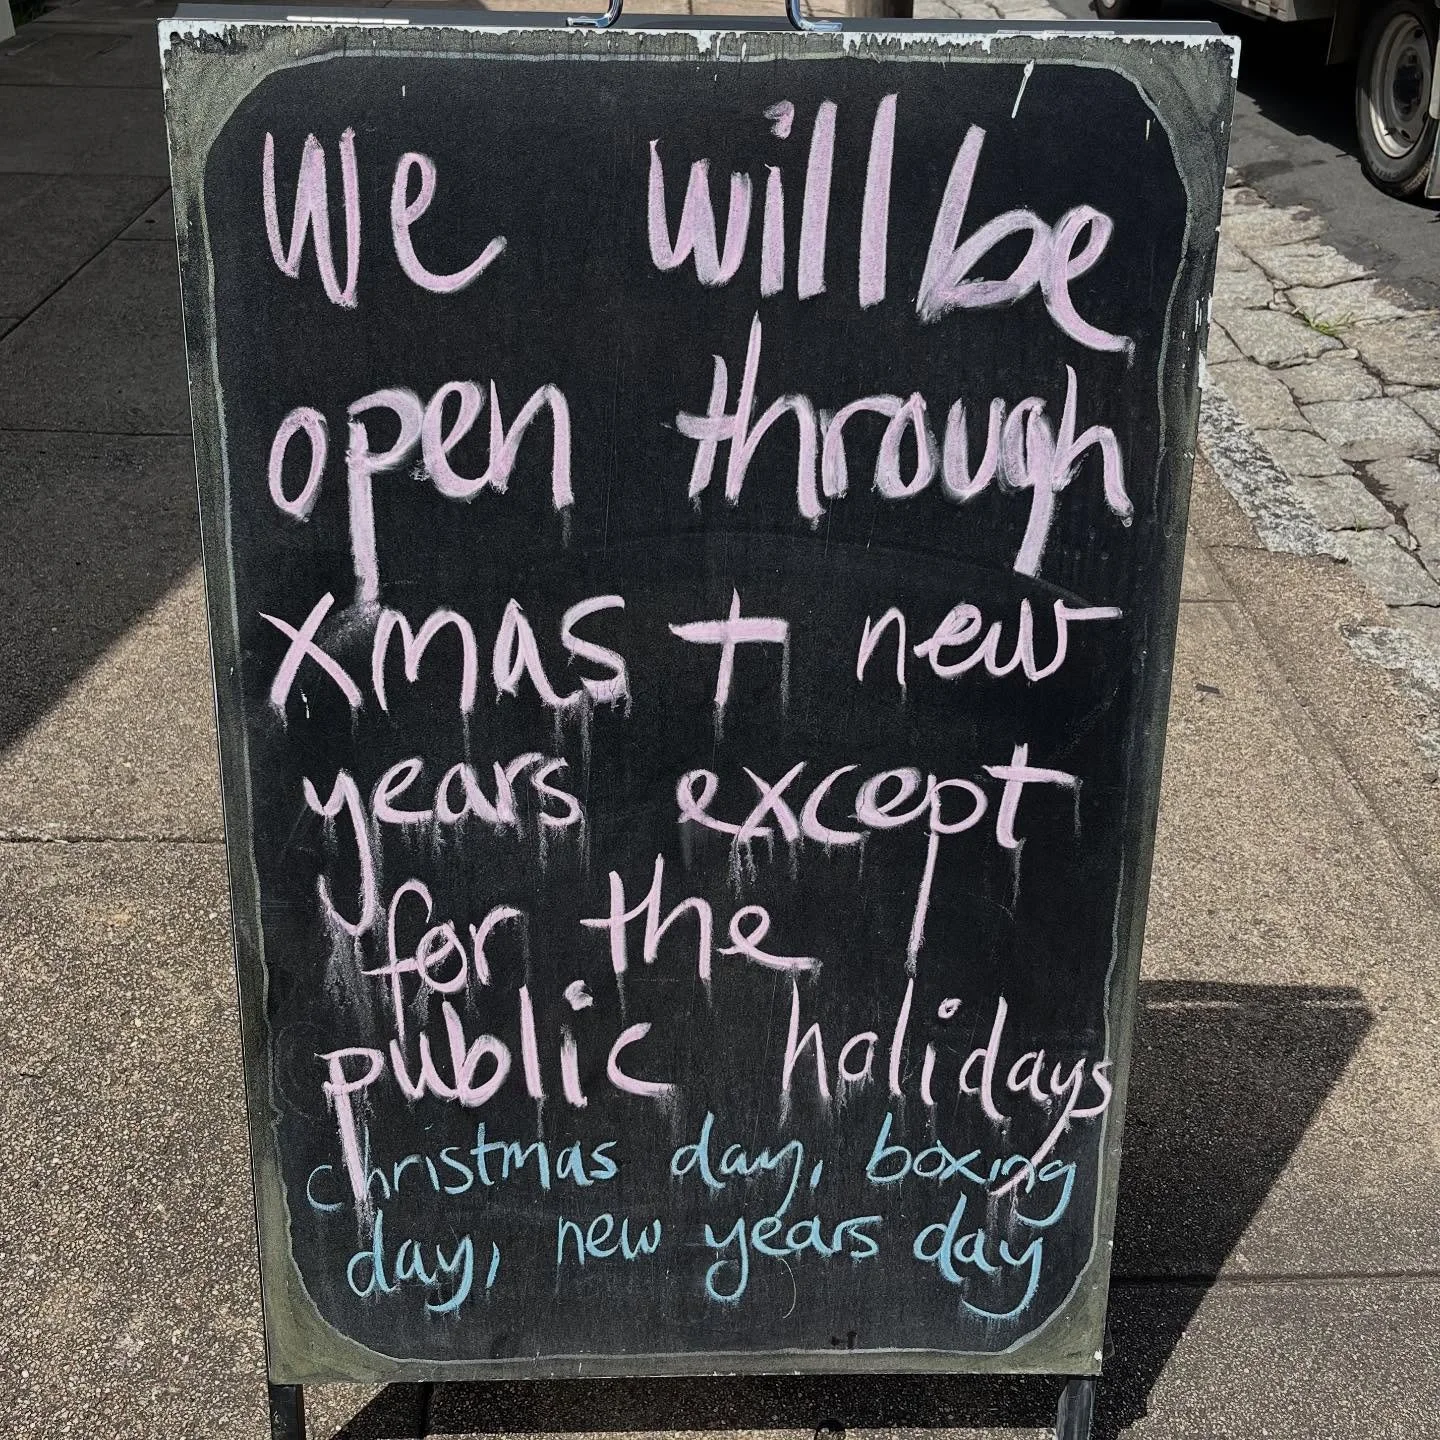 We will be
open through
xmas + new
years except
for the
public holidays
christmas day, boxing
day, new years day